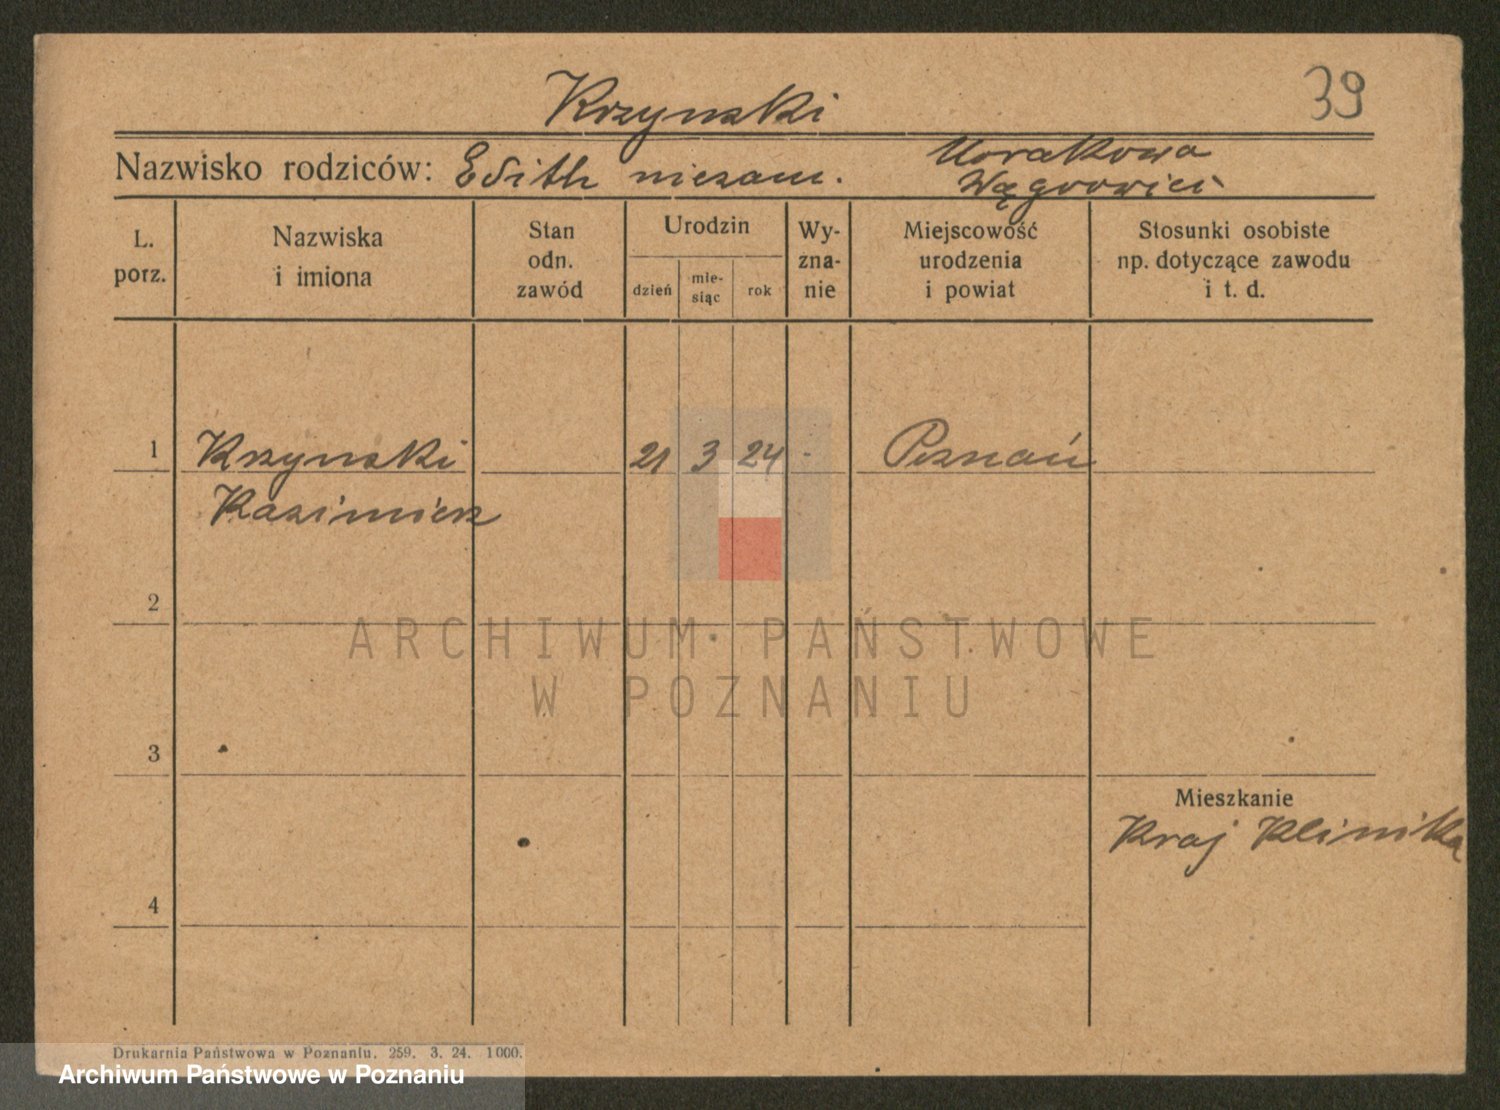 39
Krzynski
Nazwisko rodziców: Edith niezam.
Wągrowiec
L. porz.
Nazwiska i imiona
Stan odn. zawód
Urodzin
dzień
mie-siąc
rok
Wy-zna-nie
Miejscowość urodzenia i powiat
Stosunki osobiste np. dotyczące zawodu i t. d.
1 Krzynski 21 3 24 Poznań
Kazimierz
2
ARCHIWUM PAŃSTWOWE
W POZNANIU
3
Mieszkanie
Kraj Klinika
4
Drukarnia Państwowa w Poznaniu. 259. 3. 24. 1000.
Archiwum Państwowe w Poznaniu